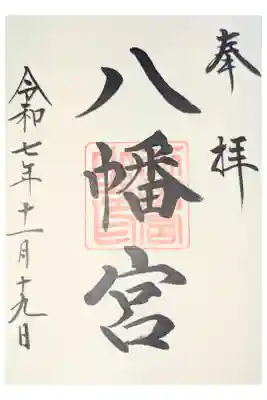 奉拝
八幡宮
令和七年十一月十九日